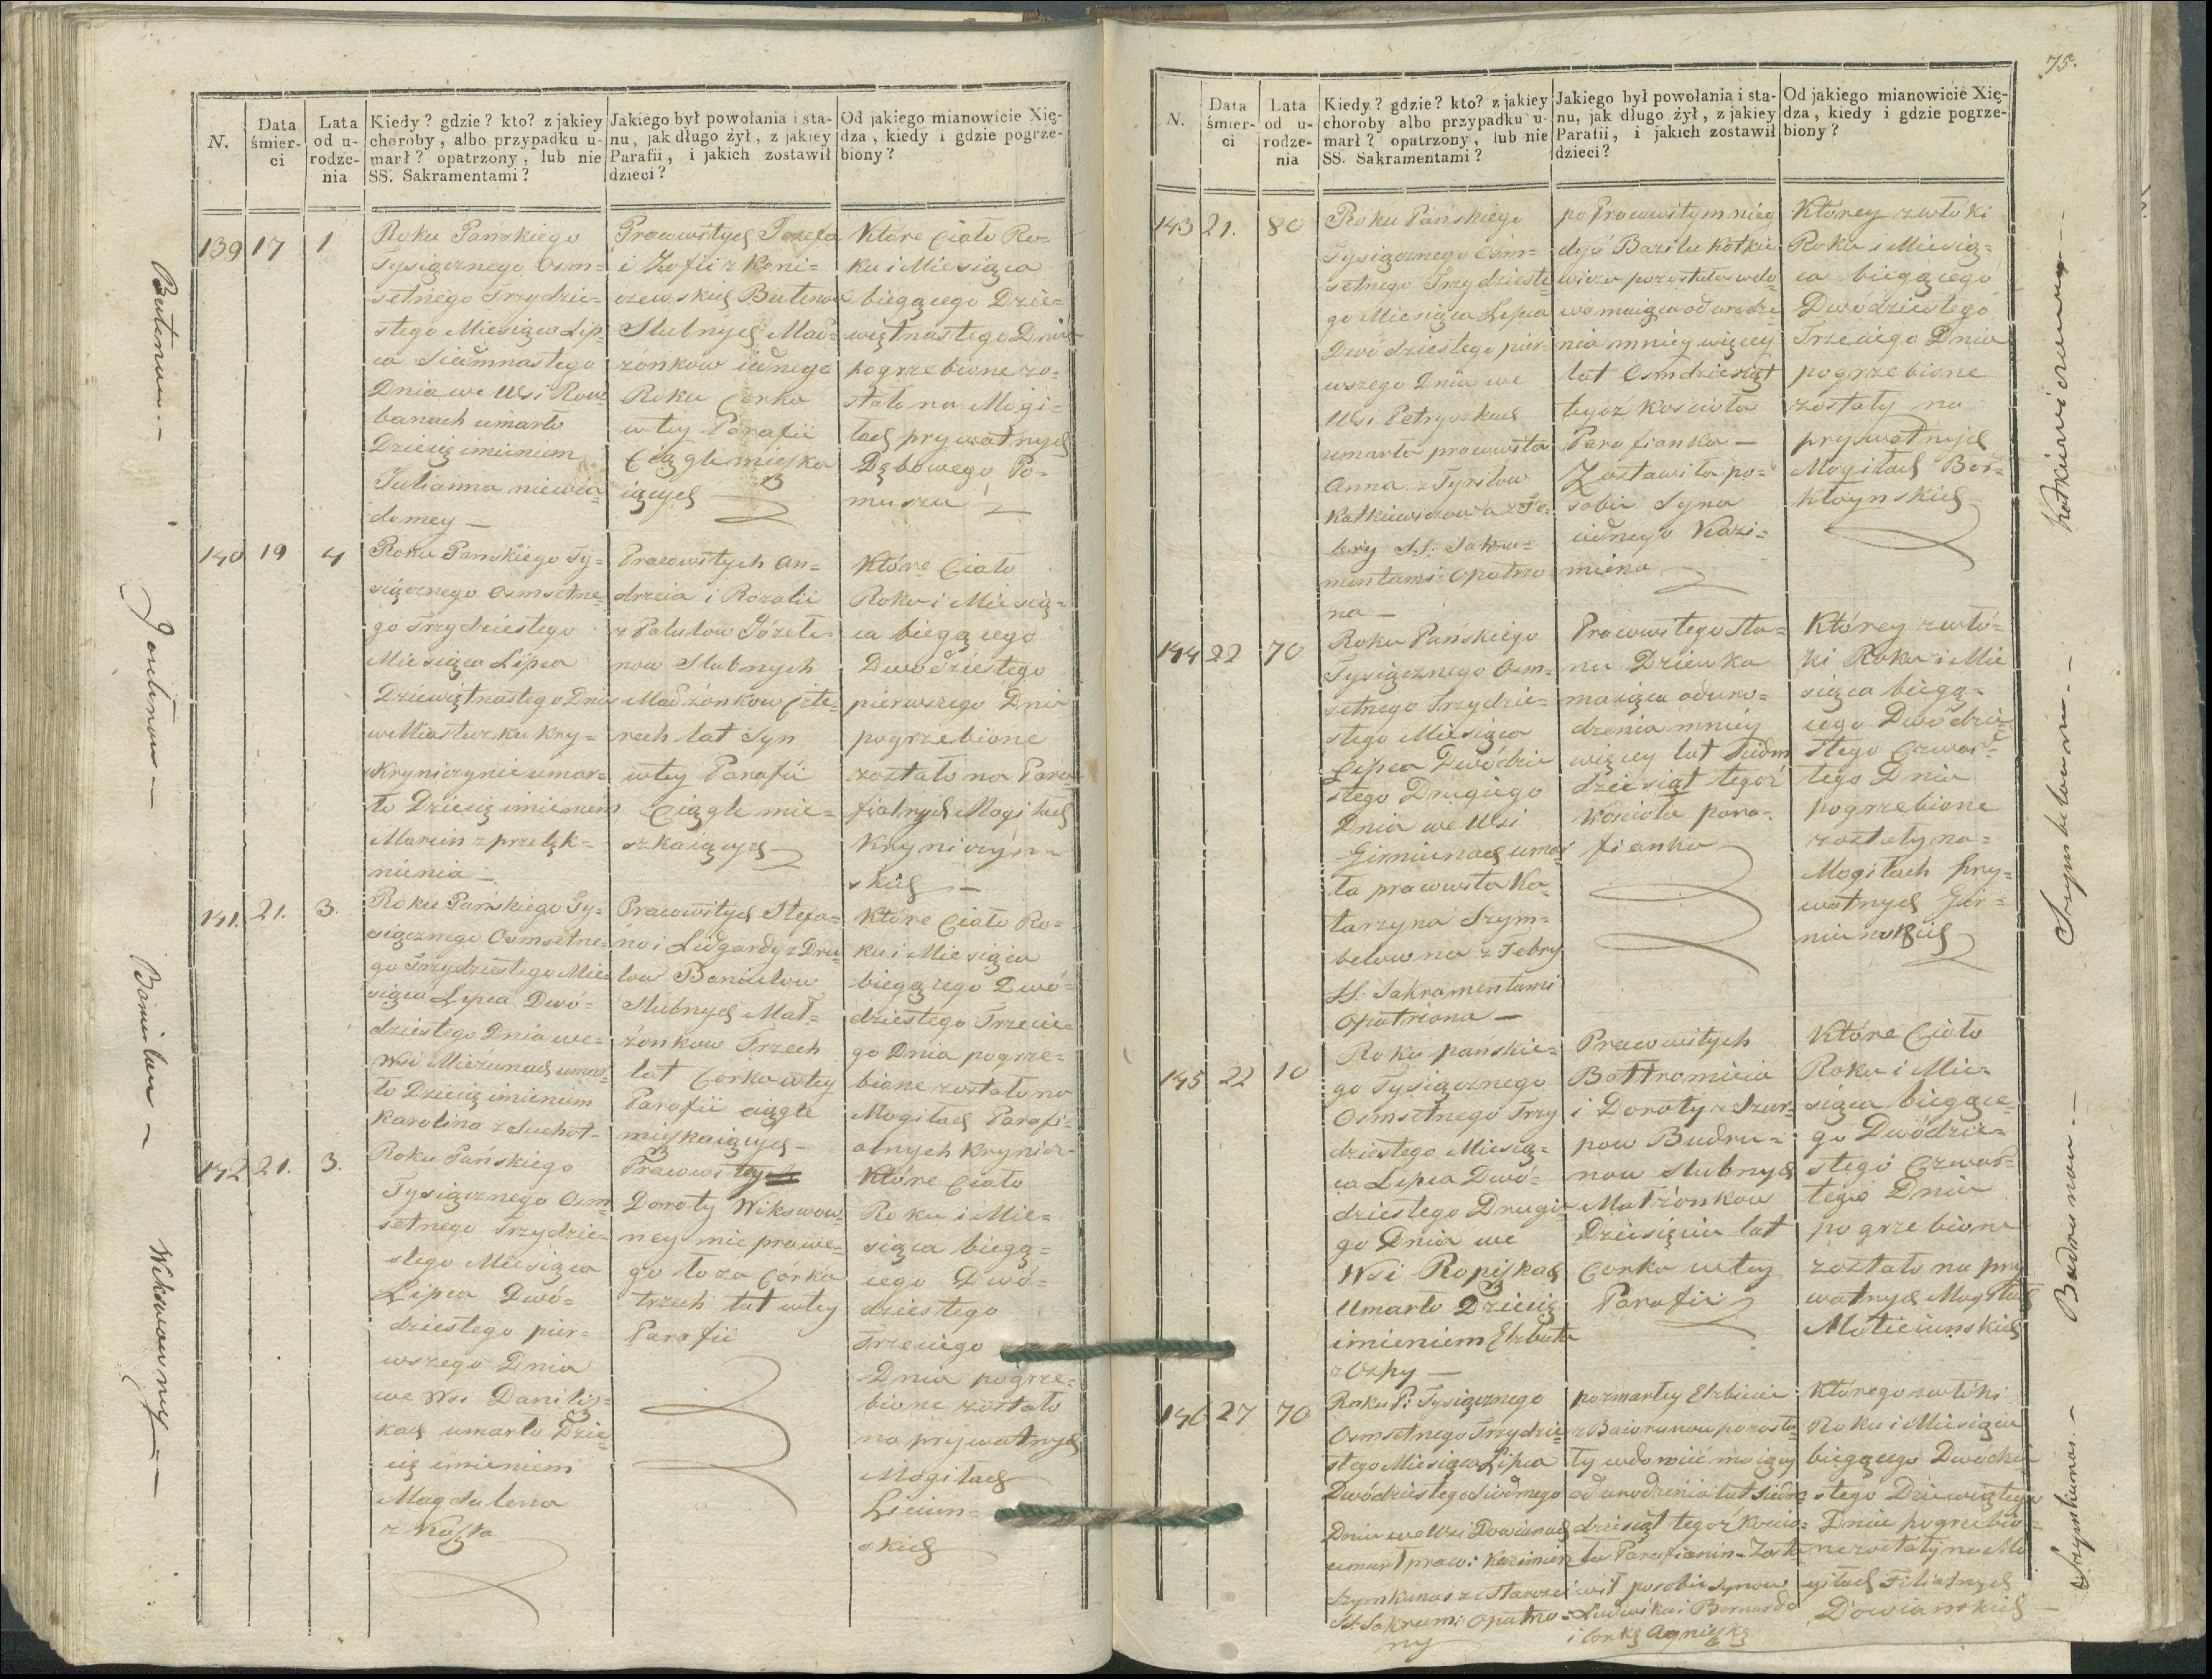 75.
N.
Data śmier-ci
Lata od u-rodze-nia
Kiedy? gdzie? kto? z jakiey
choroby, albo przypadku u-
marł? opatrzony, lub nie
SS. Sakramentami?
Jakiego był powołania i sta-
nu, jak długo żył, z jakiey
Parafii, i jakich zostawił
dzieci?
Od jakiego mianowicie Xię-
dza, kiedy i gdzie pogrze-
biony?
139
17
1
Roku Pańskiego
Tysiącznego Osm=
setnego Trzydzie=
stego Miesiąca Lip=
ca Siedmnastego
Dnia we Wsi Row=
banach umarło
Dziecię imieniem
Julianna niewia=
domey —
Pracowitych Józefa
i Zofii z Koni=
Slubnych Mał=
zonkow iednego
Roku Corka
w tey Parafii
Ciągle mieszka
iących —
Które Ciało Ro=
ku i Miesiąca
biegącego Dzie=
więtnastego Dnia
pogrzebione zo=
stało na Mogi=
łach prywatnych
Dębowego Po=
muszu
140
19
4
Roku Pańskiego Ty=
siącznego Osmsetne=
go Trzydziestego
Miesiąca Lipca
Dziewiętnastego Dnia
w Miasteczku Kry=
Kryniczynie umar=
ło Dziecię imieniem
Marcin z przelęk=
nienia —
Pracowitych An=
drzeia i Rozalii
z Patulow Józete=
now Slubnych
Małżonkow Czte=
rech lat Syn
w tey Parafii
Ciągle mie=
szkaiących
Które Ciało
Roku i Miesią=
ca biegącego
Dwódziestego
pierwszego Dnia
pogrzebione
zostało na Para=
fialnych Mogiłach
Kryniczyń=
skich —
141.
21.
3.
Roku Pańskiego Ty=
siącznego Osmsetne=
go Trzydziestego Mie=
siąca Lipca Dwó=
dziestego Dnia we
Wsi Mieżunach umar=
ło Dziecię imieniem
Karolina z Suchot—
Pracowitych Stefa=
na i Lidgardy z Dru=
low Baniulow
Slubnych Mał=
żonkow Trzech
lat Corka w tey
Parafii ciągle
mieszkaiących —
Które Ciało Ro=
ku i Miesiąca
biegącego Dwó=
dziestego Trzecie=
go Dnia pogrze=
bione zostało na
Mogiłach Parafi=
alnych Krynicz
142
21.
3.
Roku Pańskiego
Tysiącznego Osm=
setnego Trzydzie=
stego Miesiąca
Lipca Dwó=
dziestego pier=
wszego Dnia
we Wsi Danilisz=
kach umarło Dzie=
cię imieniem
Magdalena
z Kaszla
Pracowitey
Doroty Wikswow=
ney nie prawe=
go łoza Córka
trzech lat w tey
Parafii
Które Ciało
Roku i Mie=
siąca biegą=
cego Dwó=
dziestego
Trzeciego
Dnia pogrze=
bione zostało
na prywatnych
Mogiłach
Liciun=
skich
Butenow —
Jozetenow —
Baniulow —
Wikswowney —
N.
Data śmier-ci
Lata od u-rodze-nia
Kiedy? gdzie? kto? z jakiey
choroby albo przypadku u-
marł? opatrzony, lub nie
SS. Sakramentami?
Jakiego był powołania i sta-
nu, jak długo żył, z jakiey
Parafii, i jakich zostawił
dzieci?
Od jakiego mianowicie Xię-
dza, kiedy i gdzie pogrze-
biony?
143
21.
80
Roku Pańskiego
Tysiącznego Osm=
setnego Trzydzieste=
go Miesiąca Lipca
Dwódziestego pier=
wszego Dnia we
Wsi Petryszkach
umarła pracowita
Anna z Tyrilow
Kotkiewiczowa z Fe=
bry S.S. Sakra=
mentami opatrzo
na —
po Pracowitym nieg
dyś Bazilu Kotkie
wiczu pozostała wdo
wa maiąca od urodze
nia mniey więcey
lat Osmdziesiąt
tegoż Kościoła
Parafianka —
Zostawiła po=
sobie Syna
iednego Kazi=
mierza
Którey zwłoki
Roku i Miesią=
ca biegącego
Dwódziestego
Trzeciego Dnia
pogrzebione
zostały na
prywatnych
Mogiłach Bor=
kłoynskich
144
22
70
Roku Pańskiego
Tysiącznego Osm=
setnego Trzydzie=
stego Miesiąca
Lipca Dwódzie
stego Drugiego
Dnia we Wsi
Girniunach umar
ła pracowita Ka=
tarzyna Szym=
belowna z Febry
SS. Sakramentami
opatrzona —
Pracowitego Sta=
nu Dziewka
maiąca od uro=
dzenia mniey
więcey lat Siedm
dziesiąt tegoż
Kościoła para=
fianka
Którey zwło=
ki Roku i Mie
siąca biegą=
cego Dwódzie=
stego Czwar=
tego Dnia
pogrzebione
zostały na=
Mogiłach pry=
watnych Gir=
niunskich
145
22
10
Roku pańskie=
go Tysiącznego
Osmsetnego Trzy
dziestego Miesią=
ca Lipca Dwó=
dziestego Drugie
go Dnia we
Wsi Ropiszkach
Umarło Dziecię
imieniem Elzbieta
z Ospy —
Pracowitych
Bałtromieia
i Doroty z Szur=
pow Budru=
now slubnych
Małżonkow
Dziesięciu lat
Corka w tey
Parafii
Które Ciało
Roku i Mie=
siąca biegące=
go Dwódzie=
stego Czwar=
tego Dnia
pogrzebione
zostało na pry
watnych Mogiłach
Moliciunskich
146
27
70
Roku P: Tysiącznego
Osmsetnego Trzydzie=
stego Miesiąca Lipca
Dwódziestego Siódmego
Dnia we Wsi Dowianach
umarł praco: Kazimierz
Szymkunas ze starosci
SS. Sakram: opatrzo=
ny
po zmarłey Elzbiecie
z Baiorunow pozosta=
ły wdowiec maiący
od urodzenia lat siedm
dziesiąt tegoż Koscio=
ła Parafianin — Zosta
wił po sobie Synow
Ludwika i Bernarda
i Corkę Agnieszkę
Którego zwłoki
Roku i Miesiąca
biegącego Dwodzie
stego Dziewiątego
Dnia pogrzebio=
ne zostały na Mo
giłach Filialnych
Dowianskich —
Kotkiewiczowa —
Szymbelowna —
Budrunow —
Szymkunas —